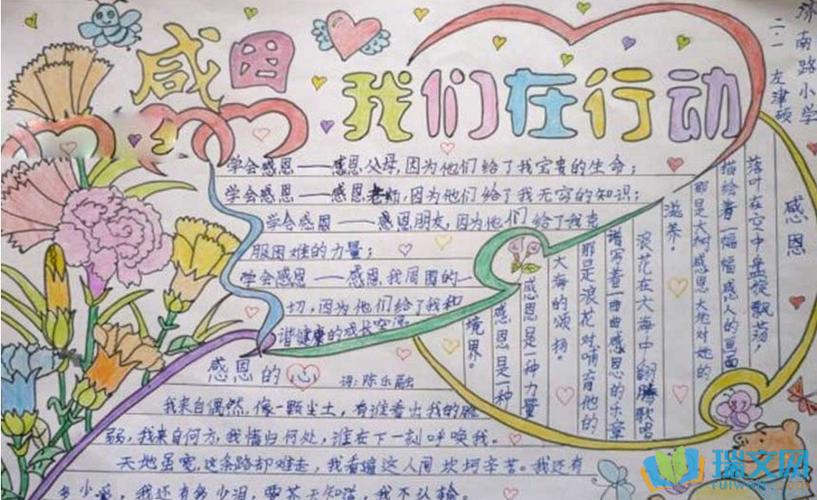 济南路小学
二·一 左津硕
感恩
我们在行动
学会感恩——感恩父母,因为他们给了我宝贵的生命;
学会感恩——感恩老师,因为他们给了我无穷的知识;
学会感恩——感恩朋友,因为他们给了我克
服困难的力量;
学会感恩——感恩我周围的一
切,因为他们给了我和
谐健康的成长空间
感恩
落叶在空中盘旋飘荡,
描绘着一幅幅感人的画面
那是大树感恩大地对她的
滋养。
浪花在大海中翻腾歌唱
谱写着一曲曲感恩的乐章
那是浪花对哺育他的
大海的颂扬。
感恩是一种力量
感恩是一种
境界。
感恩的心
词:陈乐融
我来自偶然,像一颗尘土,有谁看出我的脆
弱,我来自何方,我情归何处,谁在下一刻呼唤我。
天地虽宽,这条路却难走,我看遍这人间坎坷辛苦。我还有
多少爱,我还有多少泪,要苍天知道,我不认输
瑞文网
ruiwen.com